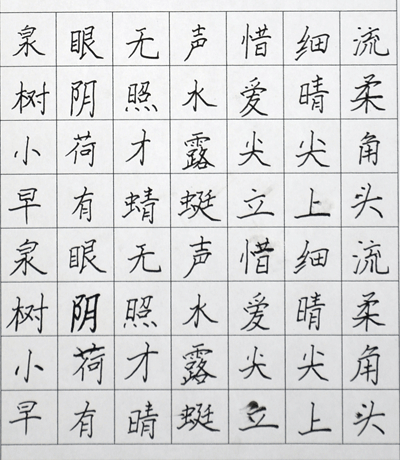 泉眼无声惜细流
树阴照水爱晴柔
小荷才露尖尖角
早有蜻蜓立上头
泉眼无声惜细流
树阴照水爱晴柔
小荷才露尖尖角
早有晴蜓立上头